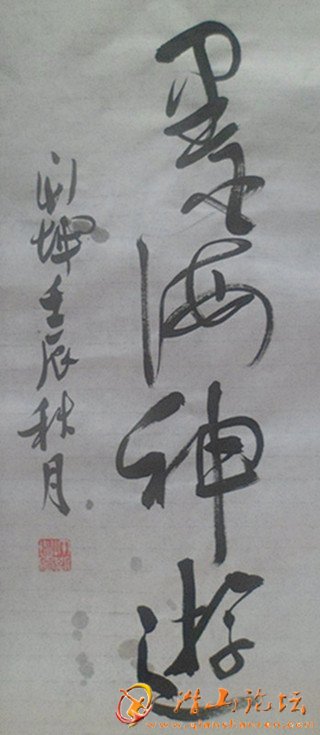 墨海神游
坤壬辰秋月
潜山论坛